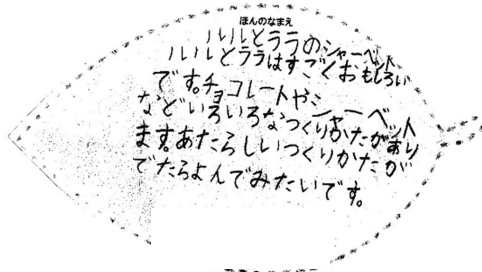 ほんのなまえ
ルルとララのシャーベット
ルルとララはすごくおもしろい
です。チョコレートやシャーベット
などいろいろなつくりかたがあり
ます。あたらしいつくりかたが
でたらよんでみたいです。